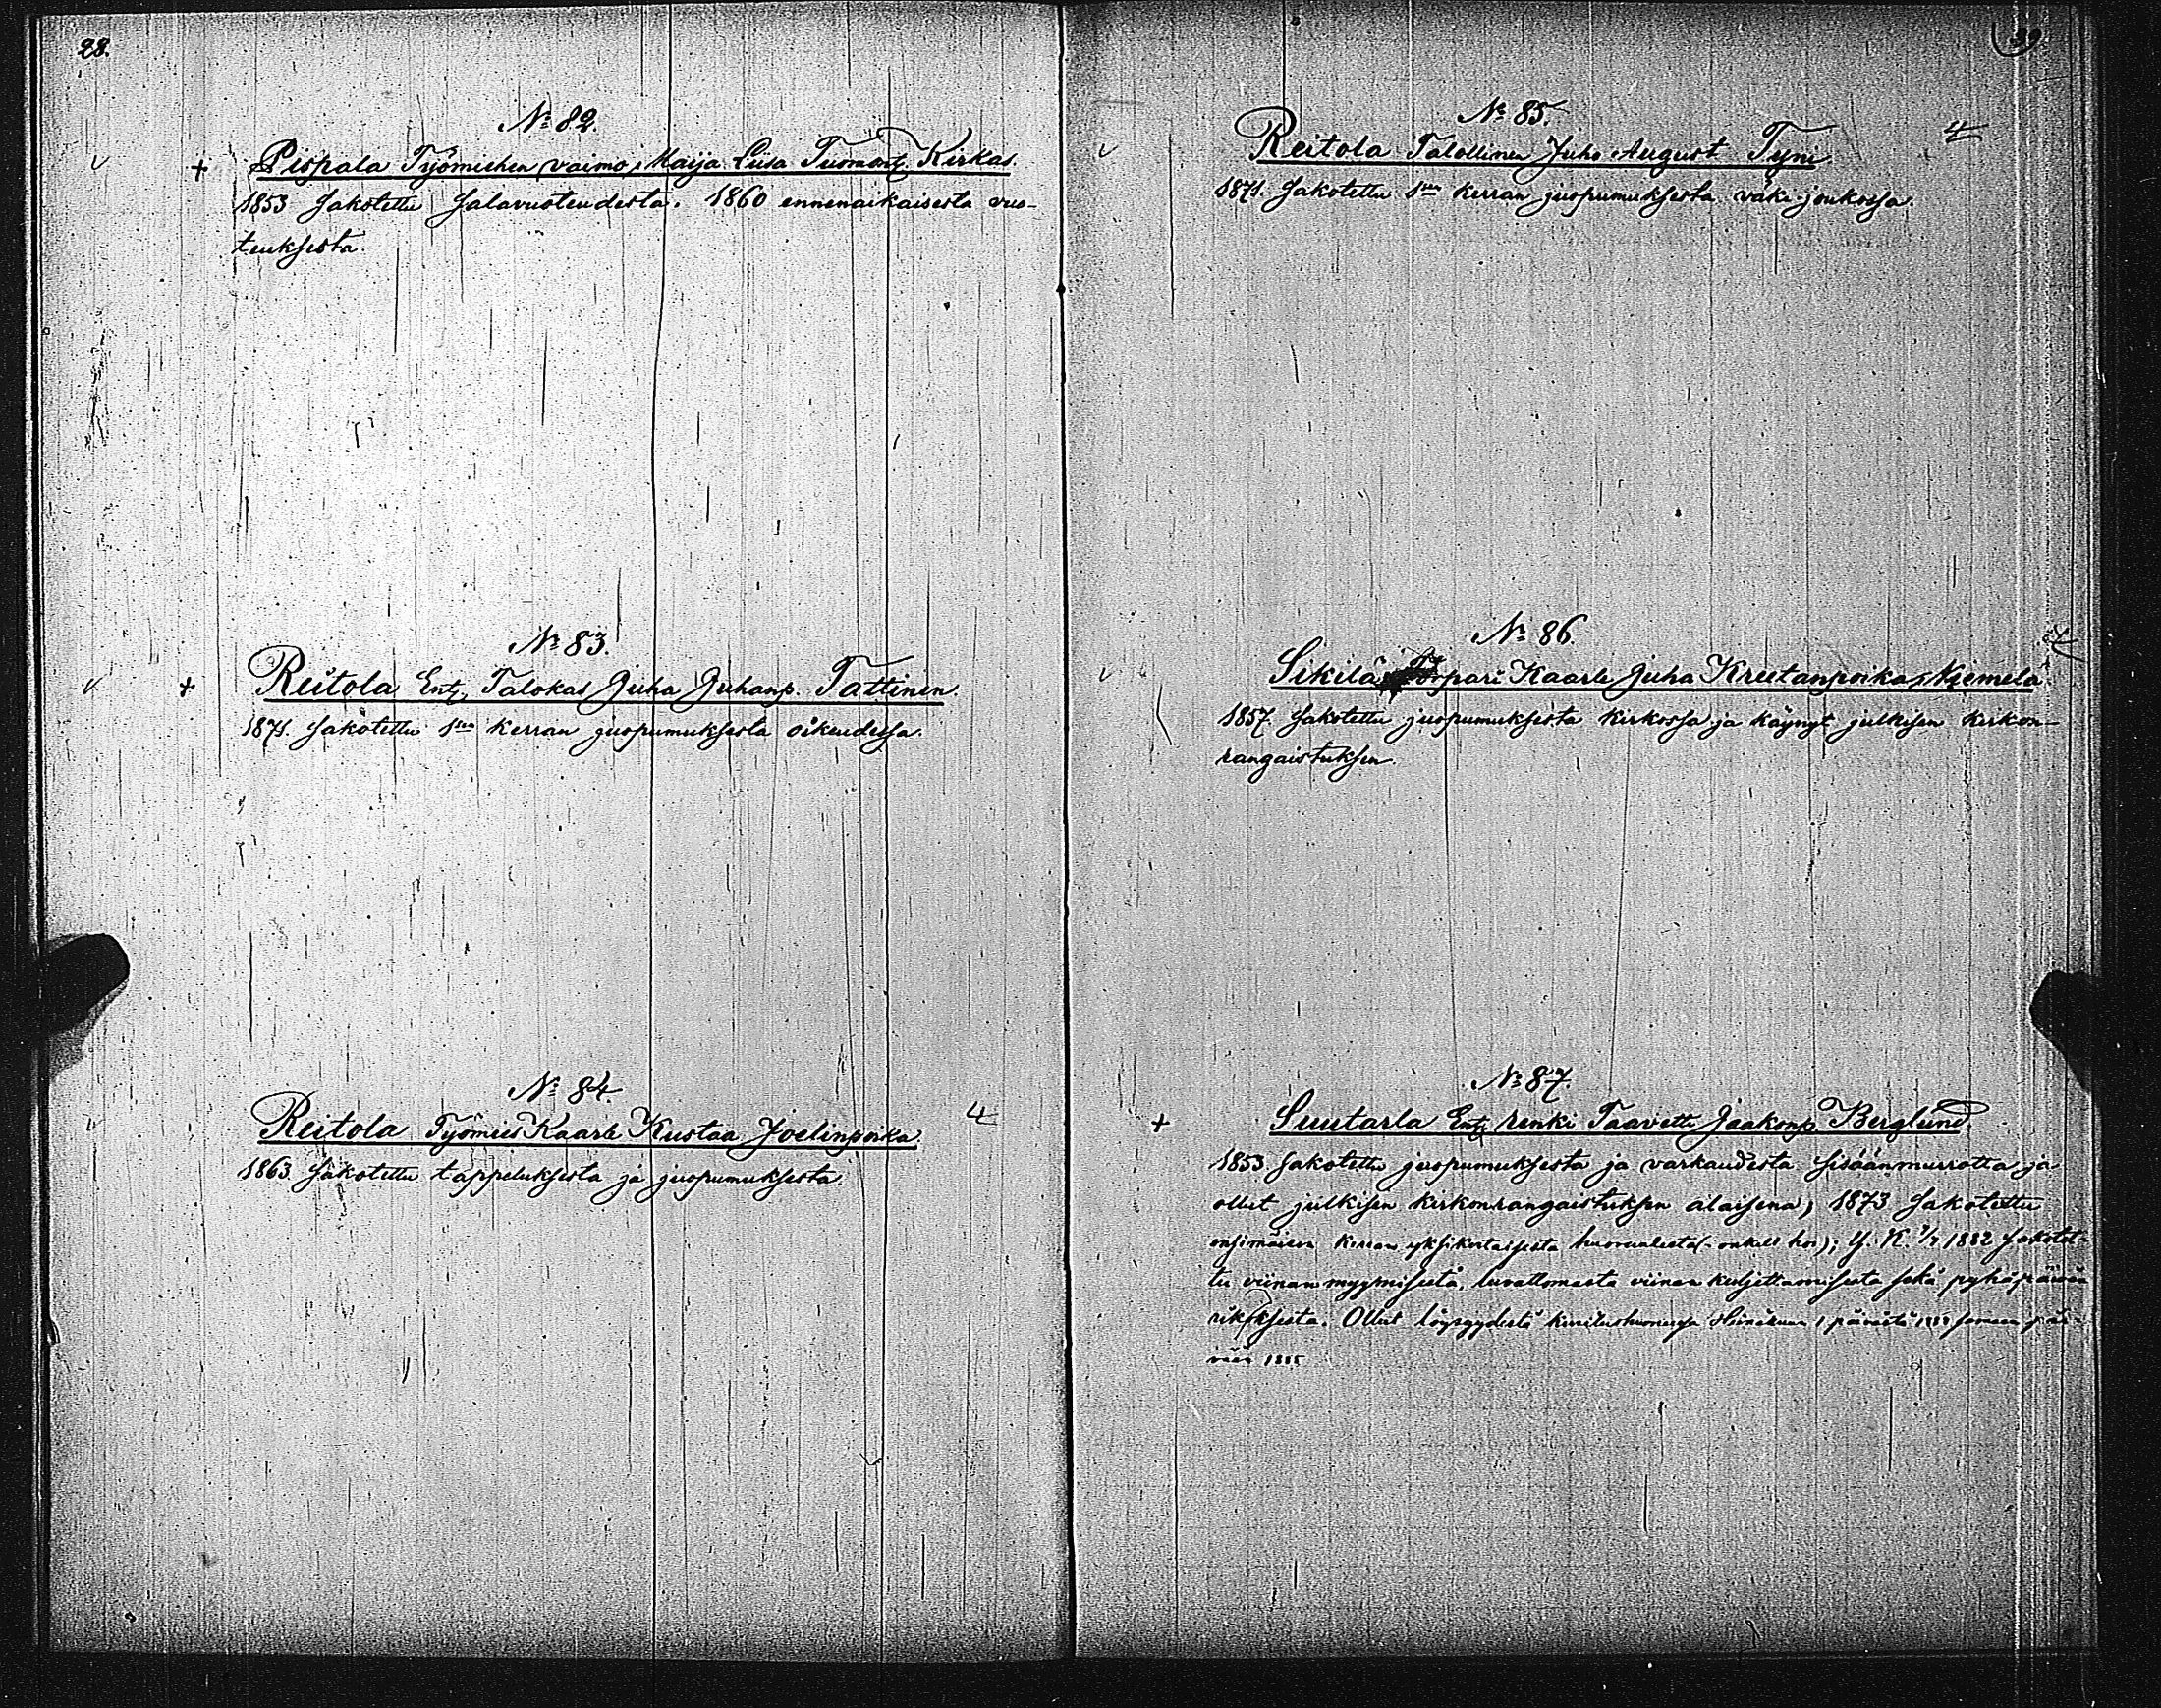 28.
№ 82.
+ Pispala Työmiehen vaimo Maija Liisa Tuomant. Kirkas.
1853 Sakotettu Salavuoteudesta. 1860 ennenaikaisesta vuo-
teuksesta.
№ 83.
+ Reitola Ent. Talokas Juha Juhanp. Tattinen.
1871. Sakotettu 1sen kerran juopumuksesta oikeudessa.
№ 84.
Reitola Työmies Kaarle Kustaa Joelinpoika. 4
1863 Sakotettu tappeluksesta ja juopumuksesta.
29
№ 85.
Reitola Talollinen Juho August Tyni 4
1871. Sakotettu 1sen kerran juopumuksesta väki-joukossa.
№ 86.
Sikilä Torpari Kaarle Juha Kreetanpoika Niemelä. 4
1857. Sakotettu juopumuksesta kirkossa ja käynyt julkisen kirkon-
rangaistuksen.
№ 87.
+ Suutarla Ent. renki Taavetti Jaakonp. Berglund.
1853 Sakotettu juopumuksesta ja varkaudesta sisäänmurrotta ja
ollut julkisen kirkonrangaistuksen alaisena; 1873 Sakotettu
ensimäisen kerran yksikertaisesta huoruudesta (enkelt hor); 1882 Sakotet-
tu viinan myymisestä, luvattomasta viinan kuljettamisesta sekä pyhäpäivän
rikoksesta. Ollut löysyydestä kuritushuoneessa Heinäkuun 1 päivästä saman päi-
vään 1885